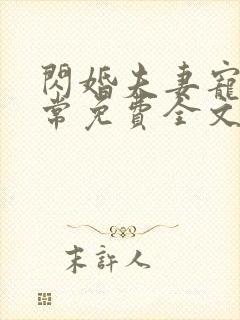 閃婚夫妻寵
常免費全文
末許人